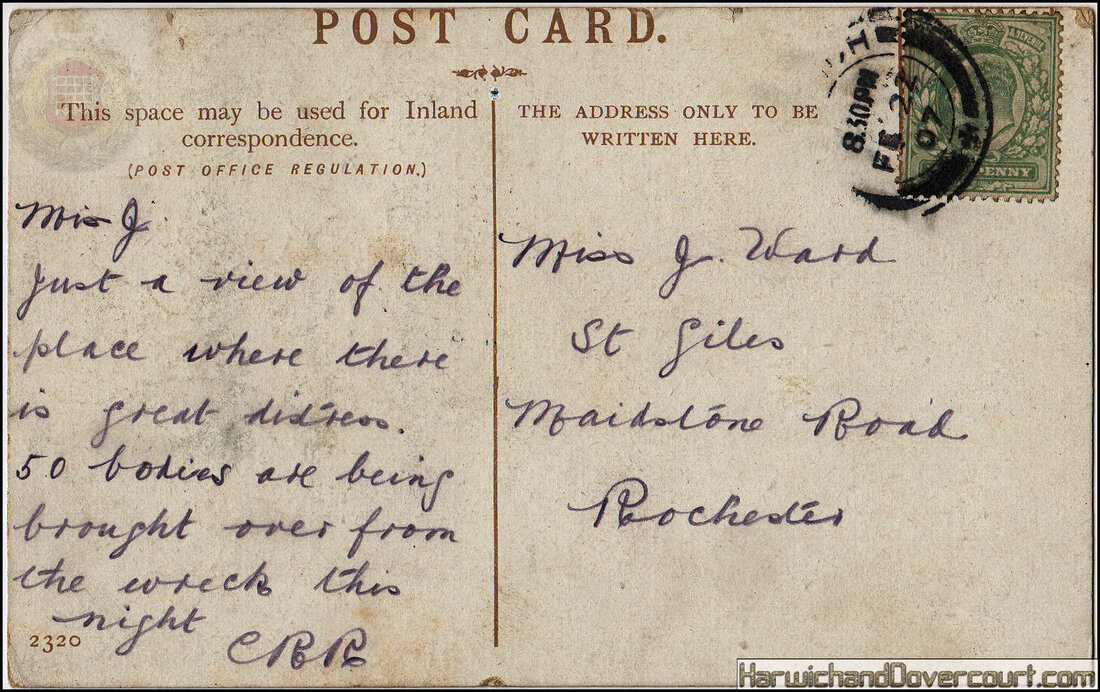 POST CARD.
This space may be used for Inland
correspondence.
(POST OFFICE REGULATION.)
THE ADDRESS ONLY TO BE
WRITTEN HERE.
8.30 PM
FE 22
07
PENNY
Miss J.
Just a view of the
place where there
is great distress.
50 bodies are being
brought over from
the wreck this
night
CRR
2320
Miss J. Ward
St Giles
Maidstone Road
Rochester
HarwichandDovercourt.com